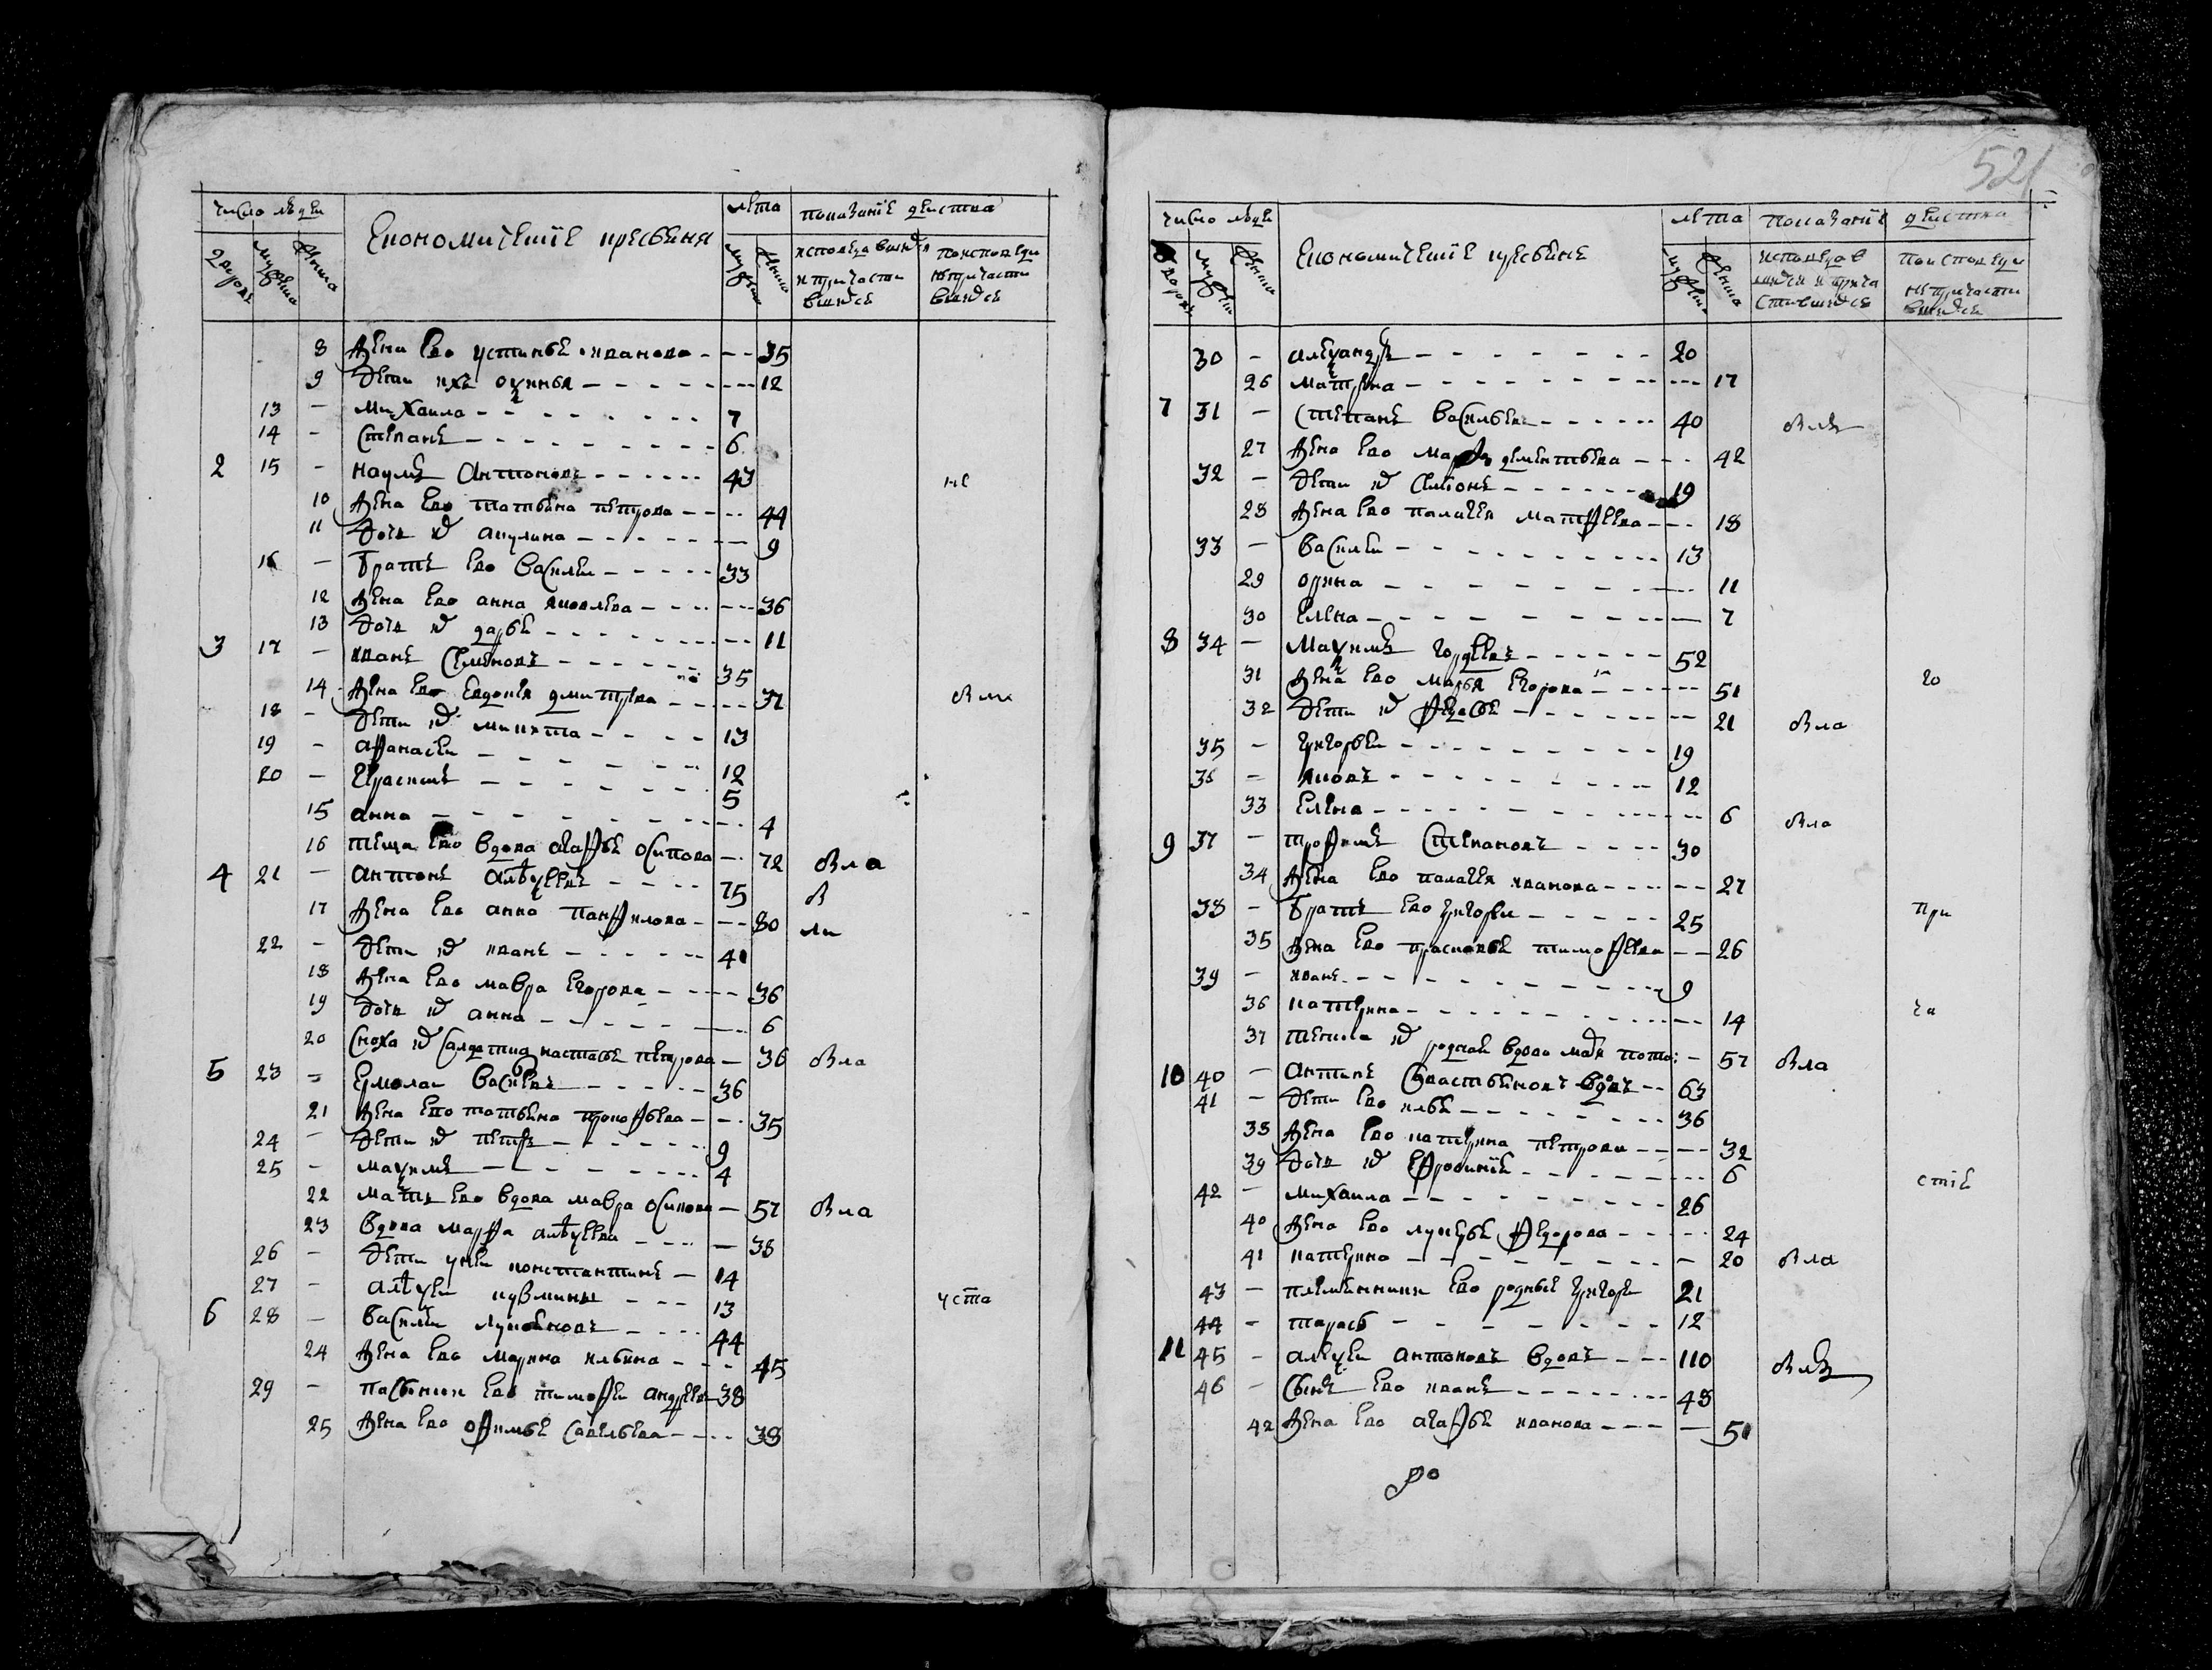 521
число людей
Економические крестьяня
лета
показание действа
дворов
мужеска
женска
мужеска
женска
исповедавшихся
и причастившихся
по исповеди
не причастившихся
8 жена ево устинья иванова - - - 35
9 дети их оксинья - - - 12
13 - михаила - - - 7
14 - степанъ - - - 6
2 15 - наумъ антоновъ - - - 43 не
10 жена ево татьяна петрова - - - 44
11 дочь ево акулина - - - 9
16 - братъ ево василеи - - - 33
12 жена ево анна яковлева - - - 36
13 дочь ево дарья - - - 11
3 17 - иванъ семеновъ - - - 35
14 жена ево евдокея дмитрева - - - 37
18 - дети ево микита - - - 13
19 - афанасеи - - - 12
20 - герасимъ - - - 5
15 анна - - - 4
16 теща ево вдова агафья осипова - 72 вла
4 21 - антонъ алѣксеевъ - - - 75 в
17 жена ево анна панфилова - - - 80 ли
22 - дети ево иванъ - - - 41
18 жена ево мавра егорова - - - 36
19 дочь ево анна - - - 6
20 сноха ево салдатка настасья петрова - 36 вла
5 23 - ермолаи василевъ - - - 36
21 жена ево татьяна прокофьева - - - 35
24 - дети ево петръ - - - 9
25 - максимъ - - - 4
22 мать ево вдова мавра осипова - 57 вла
23 вдова марфа алѣксеева - - - 38
26 - дети у неи константинъ - 14
27 - алѣксеи кузмины - - - 13 уста
6 28 - василеи лукояновъ - - - 44
24 жена ево марина ильина - - - 45
29 - пасынокъ ево тимофеи андреевъ - 38
25 жена ево офимья савельева - - - 38
число людей
Економические крестьяне
лета
показание действа
дворов
мужеска
женска
мужеска
женска
исповедав
шихся и прича
стившихся
по исповеди
не причасти
вшихся
30 - алѣксандръ - - - 20
26 матрена - - - 17
7 31 - степанъ васильевъ - - - 40
27 жена ево марфа дементьева - - - 42
32 - дети ево семионъ - - - 19
28 жена ево палагея матфеева - - - 18
33 - василеи - - - 13
29 орина - - - 11
30 елена - - - 7
8 34 - максимъ гордеевъ - - - 52
31 жена ево марья егорова - - - 51 го
32 дети ево федосья - - - 21 вла
35 - григореи - - - 19
36 - яковъ - - - 12
33 елена - - - 6 вла
9 37 - трофимъ степановъ - - - 30
34 жена ево палагея иванова - - - 27
38 - братъ ево григореи - - - 25 при
35 жена ево прасковья тимофеева - - 26
39 - иванъ - - - 9
36 катерина - - - 14 ча
37 тетка ево родная вдова - 57 вла
10 40 - антипъ савастьяновъ вдовъ - - 63
41 - дети ево илья - - - 36
38 жена ево катерина петрова - - - 32
39 дочь ево ефросиния - - - 6 стiе
42 - михаила - - - 26
40 жена ево лукерья федорова - - - 24
41 катерина - - - 20 вла
43 - племянники ево родные григореи 21
44 - тарасъ - - - 12
11 45 - алексеи антоновъ вдовъ - - - 110
46 - сынъ ево иванъ - - - 48
42 жена ево агафья иванова - - - 51